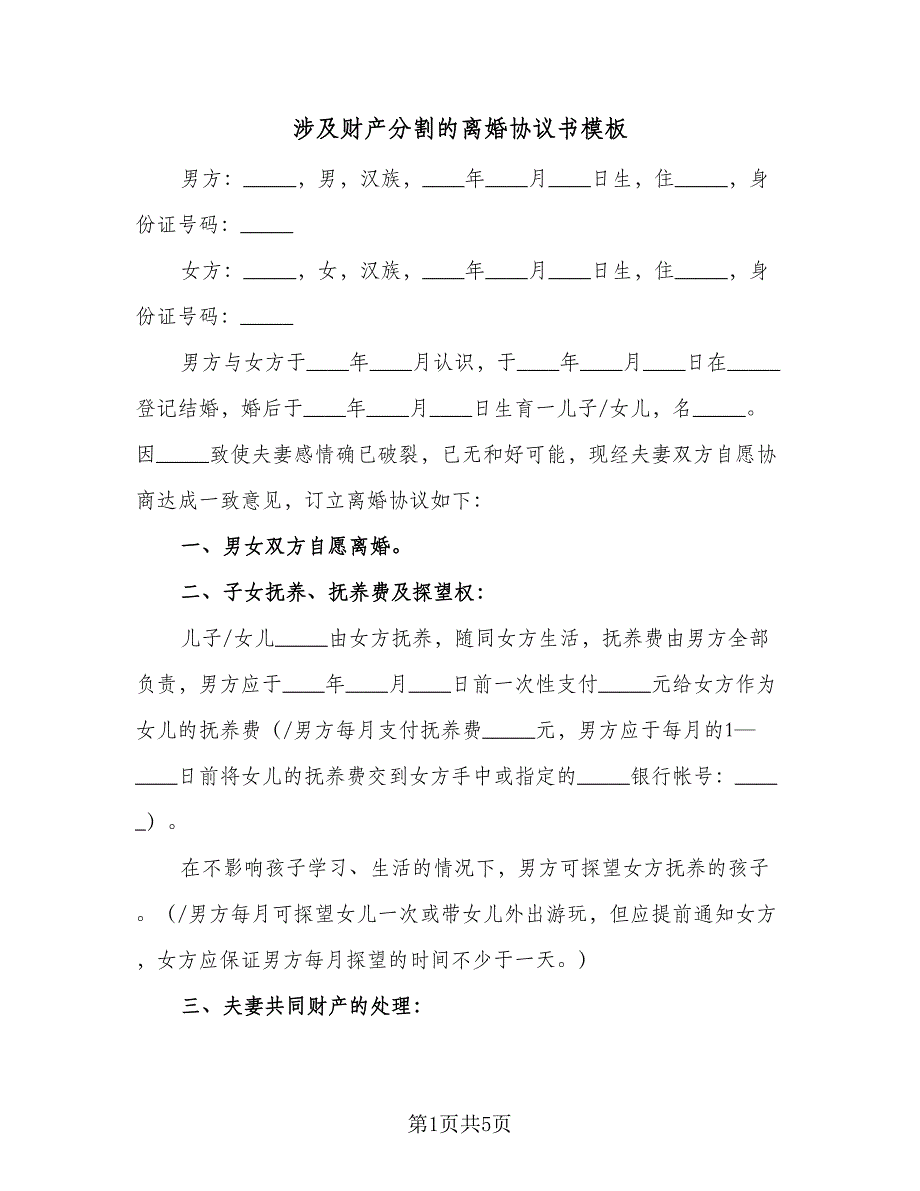 涉及财产分割的离婚协议书模板
男方：_____，男，汉族，____年____月____日生，住_____，身
份证号码：_____
女方：_____，女，汉族，____年____月____日生，住_____，身
份证号码：_____
男方与女方于____年____月认识，于____年____月____日在_____
登记结婚，婚后于____年____月____日生育一儿子/女儿，名_____。
因_____致使夫妻感情确已破裂，已无和好可能，现经夫妻双方自愿协
商达成一致意见，订立离婚协议如下：
一、男女双方自愿离婚。
二、子女抚养、抚养费及探望权：
儿子/女儿_____由女方抚养，随同女方生活，抚养费由男方全部
负责，男方应于____年____月____日前一次性支付_____元给女方作为
女儿的抚养费（/男方每月支付抚养费_____元，男方应于每月的1—
____日前将女儿的抚养费交到女方手中或指定的_____银行帐号：____
_）。
在不影响孩子学习、生活的情况下，男方可探望女方抚养的孩子
。（/男方每月可探望女儿一次或带女儿外出游玩，但应提前通知女方
，女方应保证男方每月探望的时间不少于一天。）
三、夫妻共同财产的处理：
第1页共5页